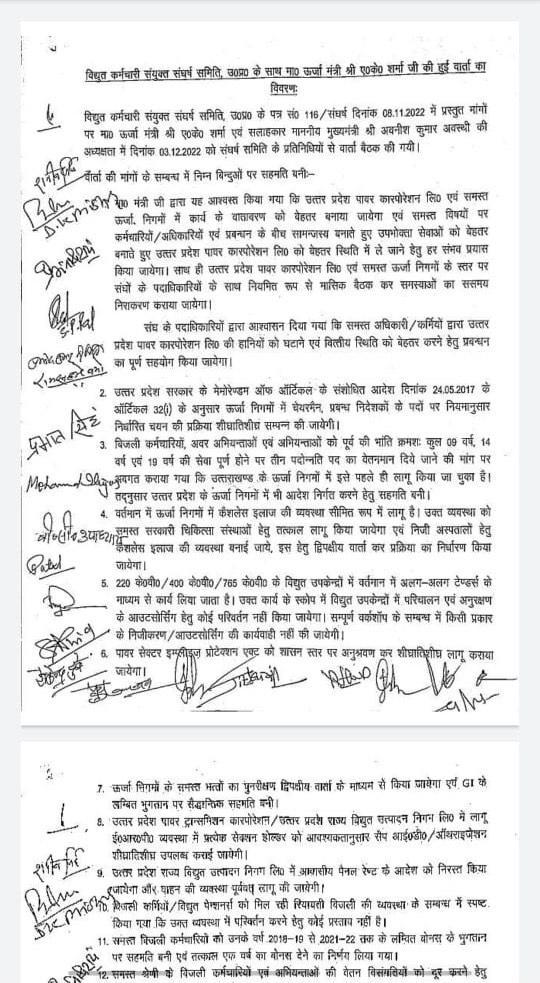 विद्युत कर्मचारी संयुक्त संघर्ष समिति, उ0प्र0 के साथ मा0 ऊर्जा मंत्री श्री ए0के0 शर्मा जी की हुई वार्ता का
विवरणः
विद्युत कर्मचारी संयुक्त संघर्ष समिति, उ0प्र0 के पत्र सं0 116/संघर्ष दिनांक 08.11.2022 में प्रस्तुत मांगों
पर मा0 ऊर्जा मंत्री श्री ए0के0 शर्मा एवं सलाहकार माननीय मुख्यमंत्री श्री अवनीश कुमार अवस्थी की
अध्यक्षता में दिनांक 03.12.2022 को संघर्ष समिति के प्रतिनिधियों से वार्ता बैठक की गयी।
वार्ता की मांगों के सम्बन्ध में निम्न बिन्दुओं पर सहमति बनीः–
मा0 मंत्री जी द्वारा यह आश्वस्त किया गया कि उत्तर प्रदेश पावर कारपोरेशन लि0 एवं समस्त
ऊर्जा निगमों में कार्य के वातावरण को बेहतर बनाया जायेगा एवं समस्त विषयों पर
कर्मचारियों/अधिकारियों एवं प्रबन्धन के बीच सामन्जस्य बनाते हुए उपभोक्ता सेवाओं को बेहतर
बनाते हुए उत्तर प्रदेश पावर कारपोरेशन लि0 को बेहतर स्थिति में ले जाने हेतु हर संभव प्रयास
किया जायेगा। साथ ही उत्तर प्रदेश पावर कारपोरेशन लि0 एवं समस्त ऊर्जा निगमों के स्तर पर
संघों के पदाधिकारियों के साथ नियमित रूप से मासिक बैठक कर समस्याओं का ससमय
निराकरण कराया जायेगा।
संघ के पदाधिकारियों द्वारा आश्वासन दिया गया कि समस्त अधिकारी/कर्मियों द्वारा उत्तर
प्रदेश पावर कारपोरेशन लि0 की हानियों को घटाने एवं वित्तीय स्थिति को बेहतर करने हेतु प्रबन्धन
का पूर्ण सहयोग किया जायेगा।
2. उत्तर प्रदेश सरकार के मेमोरेण्डम ऑफ ऑर्टिकल के संशोधित आदेश दिनांक 24.05.2017 के
ऑर्टिकल 32(i) के अनुसार ऊर्जा निगमों में चेयरमैन, प्रबन्ध निदेशकों के पदों पर नियमानुसार
निर्धारित चयन की प्रक्रिया शीघातिशीघ्र सम्पन्न की जायेगी।
3. बिजली कर्मचारियों, अवर अभियन्ताओं एवं अभियन्ताओं को पूर्व की भांति क्रमशः कुल 09 वर्ष, 14
वर्ष एवं 19 वर्ष की सेवा पूर्ण होने पर तीन पदोन्नति पद का वेतनमान दिये जाने की मांग पर
अवगत कराया गया कि उत्तराखण्ड के ऊर्जा निगमों में इसे पहले ही लागू किया जा चुका है।
तद्नुसार उत्तर प्रदेश के ऊर्जा निगमों में भी आदेश निर्गत करने हेतु सहमति बनी।
4. वर्तमान में ऊर्जा निगमों में कैशलेस इलाज की व्यवस्था सीमित रूप में लागू है। उक्त व्यवस्था को
समस्त सरकारी चिकित्सा संस्थाओं हेतु तत्काल लागू किया जायेगा एवं निजी अस्पतालों हेतु
कैशलेस इलाज की व्यवस्था बनाई जाये, इस हेतु द्विपक्षीय वार्ता कर प्रक्रिया का निर्धारण किया
जायेगा।
5. 220 के0वी0/400 के0वी0/765 के0वी0 के विद्युत उपकेन्द्रों में वर्तमान में अलग-अलग टेण्डर्स के
माध्यम से कार्य लिया जाता है। उक्त कार्य के स्कोप में विद्युत उपकेन्द्रों में परिचालन एवं अनुरक्षण
के आउटसोर्सिंग हेतु कोई परिवर्तन नहीं किया जायेगा। सम्पूर्ण वर्कशॉप के सम्बन्ध में किसी प्रकार
के निजीकरण/आउटसोर्सिंग की कार्यवाही नहीं की जायेगी।
6. पावर सेक्टर इम्प्लाइज प्रोटेक्शन एक्ट को शासन स्तर पर अनुश्रवण कर शीघातिशीघ्र लागू कराया
जायेगा।
7. ऊर्जा निगमों के समस्त भत्तों का पुनरीक्षण द्विपक्षीय वार्ता के माध्यम से किया जायेगा एवं GI के
लम्बित भुगतान पर सैद्धान्तिक सहमति बनी।
8. उत्तर प्रदेश पावर ट्रान्समिशन कारपोरेशन/उत्तर प्रदेश राज्य विद्युत उत्पादन निगम लि0 में लागू
ई0आर0पी0 व्यवस्था में प्रत्येक सेक्शन होल्डर को आवश्यकतानुसार सैप आई0डी0/ऑथराइजेशन
शीघातिशीघ्र उपलब्ध कराई जायेगी।
9. उत्तर प्रदेश राज्य विद्युत उत्पादन निगम लि0 में आवासीय पैनल रेण्ट के आदेश को निरस्त किया
जायेगा और वाहन की व्यवस्था पूर्ववत् लागू की जायेगी।
10. बिजली कर्मियों/विद्युत पेन्शनर्स को मिल रही रियायती बिजली की व्यवस्था के सम्बन्ध में स्पष्ट
किया गया कि उक्त व्यवस्था में परिवर्तन करने हेतु कोई प्रस्ताव नहीं है।
11. समस्त बिजली कर्मचारियों को उनके वर्ष 2018-19 से 2021-22 तक के लम्बित बोनस के भुगतान
पर सहमति बनी एवं तत्काल एक वर्ष का बोनस देने का निर्णय लिया गया।
12. समस्त श्रेणी के बिजली कर्मचारियों एवं अभियन्ताओं की वेतन विसंगतियों को दूर करने हेतु